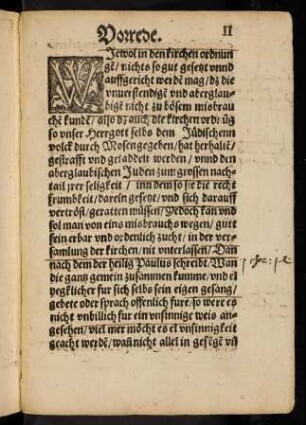 Vorrede. II
WJewol in den kirchen ordnun
gē/ nichts so gut gesetzt vnnd
auffgericht werdē mag/ dz die
vnuerstendigē vnd aberglau-
bigē nicht zu bösem misbrau-
chē kundē/ also dz auch die kirchen ord:
so vnser Herrgott selbs dem Jüdischenn
volck durch Mosen gegeben/ hat
gestrafft vnd getaddelt werden/ vnnd den
aberglaubischen Juden zum grossen nach-
tail jrer seligkeit/ inn dem so sie die recht
frumbkeit/ darein gesetzt/ vnd sich darauff
vertröst/ geratten müssen/ Jedoch kan vnd
sol man von eins misbrauchs wegen/ gutt
fein erbar vnd ordenlich zucht/ in der ver-
samlung der kirchen/ nit vnterlassen/ Dan
nach dem der heilig Paulus schreibt. Wan
die gantz gemein zusammen kumme/ vnd ei
yegklicher fur sich selbs sein eigen gesang/
gebete oder sprach offenlich fure/ so were es
nicht vnbillich fur ein vnsinnige weis an-
gesehen/ viel mer möcht es ei vnsinnigkeit
geacht werdē/ wañ nicht allel in gesēgē vñ